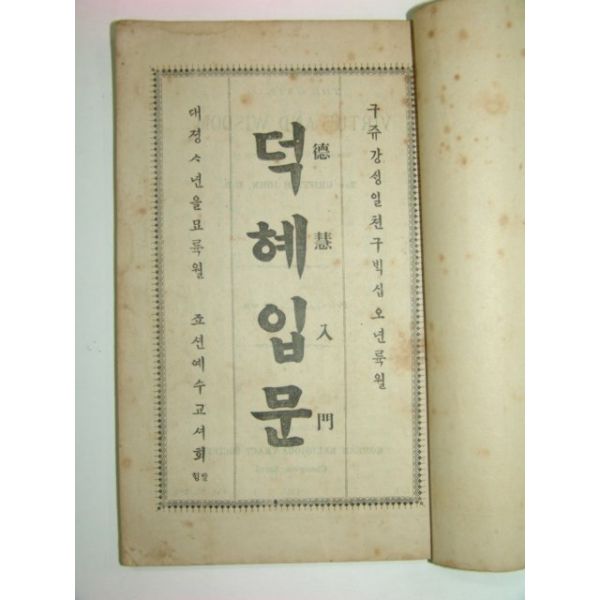 구쥬강셩일쳔구빅십오년륙월
덕혜입문
德慧入門
대졍ᄉ년을묘륙월 죠션예수교셔회